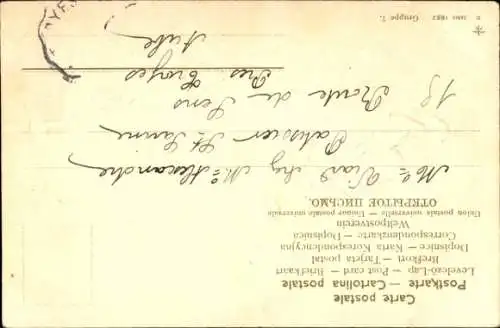 Carte postale
Postkarte — Cartolina postale
Levelező-Lap — Post card — Briefkaart
Brefkort — Tarjeta postal
Dopisnice — Karta Korespondencyjna
Correspondenzkarte — Dopisnica
Weltpostverein
Union postale universelle — Union postale universale
ОТКРЫТОЕ ПИСЬМО.
chez Mr Alexandre
Patissier St Savine
19 Route de Sens
Près Troyes
Aube
Gruppe